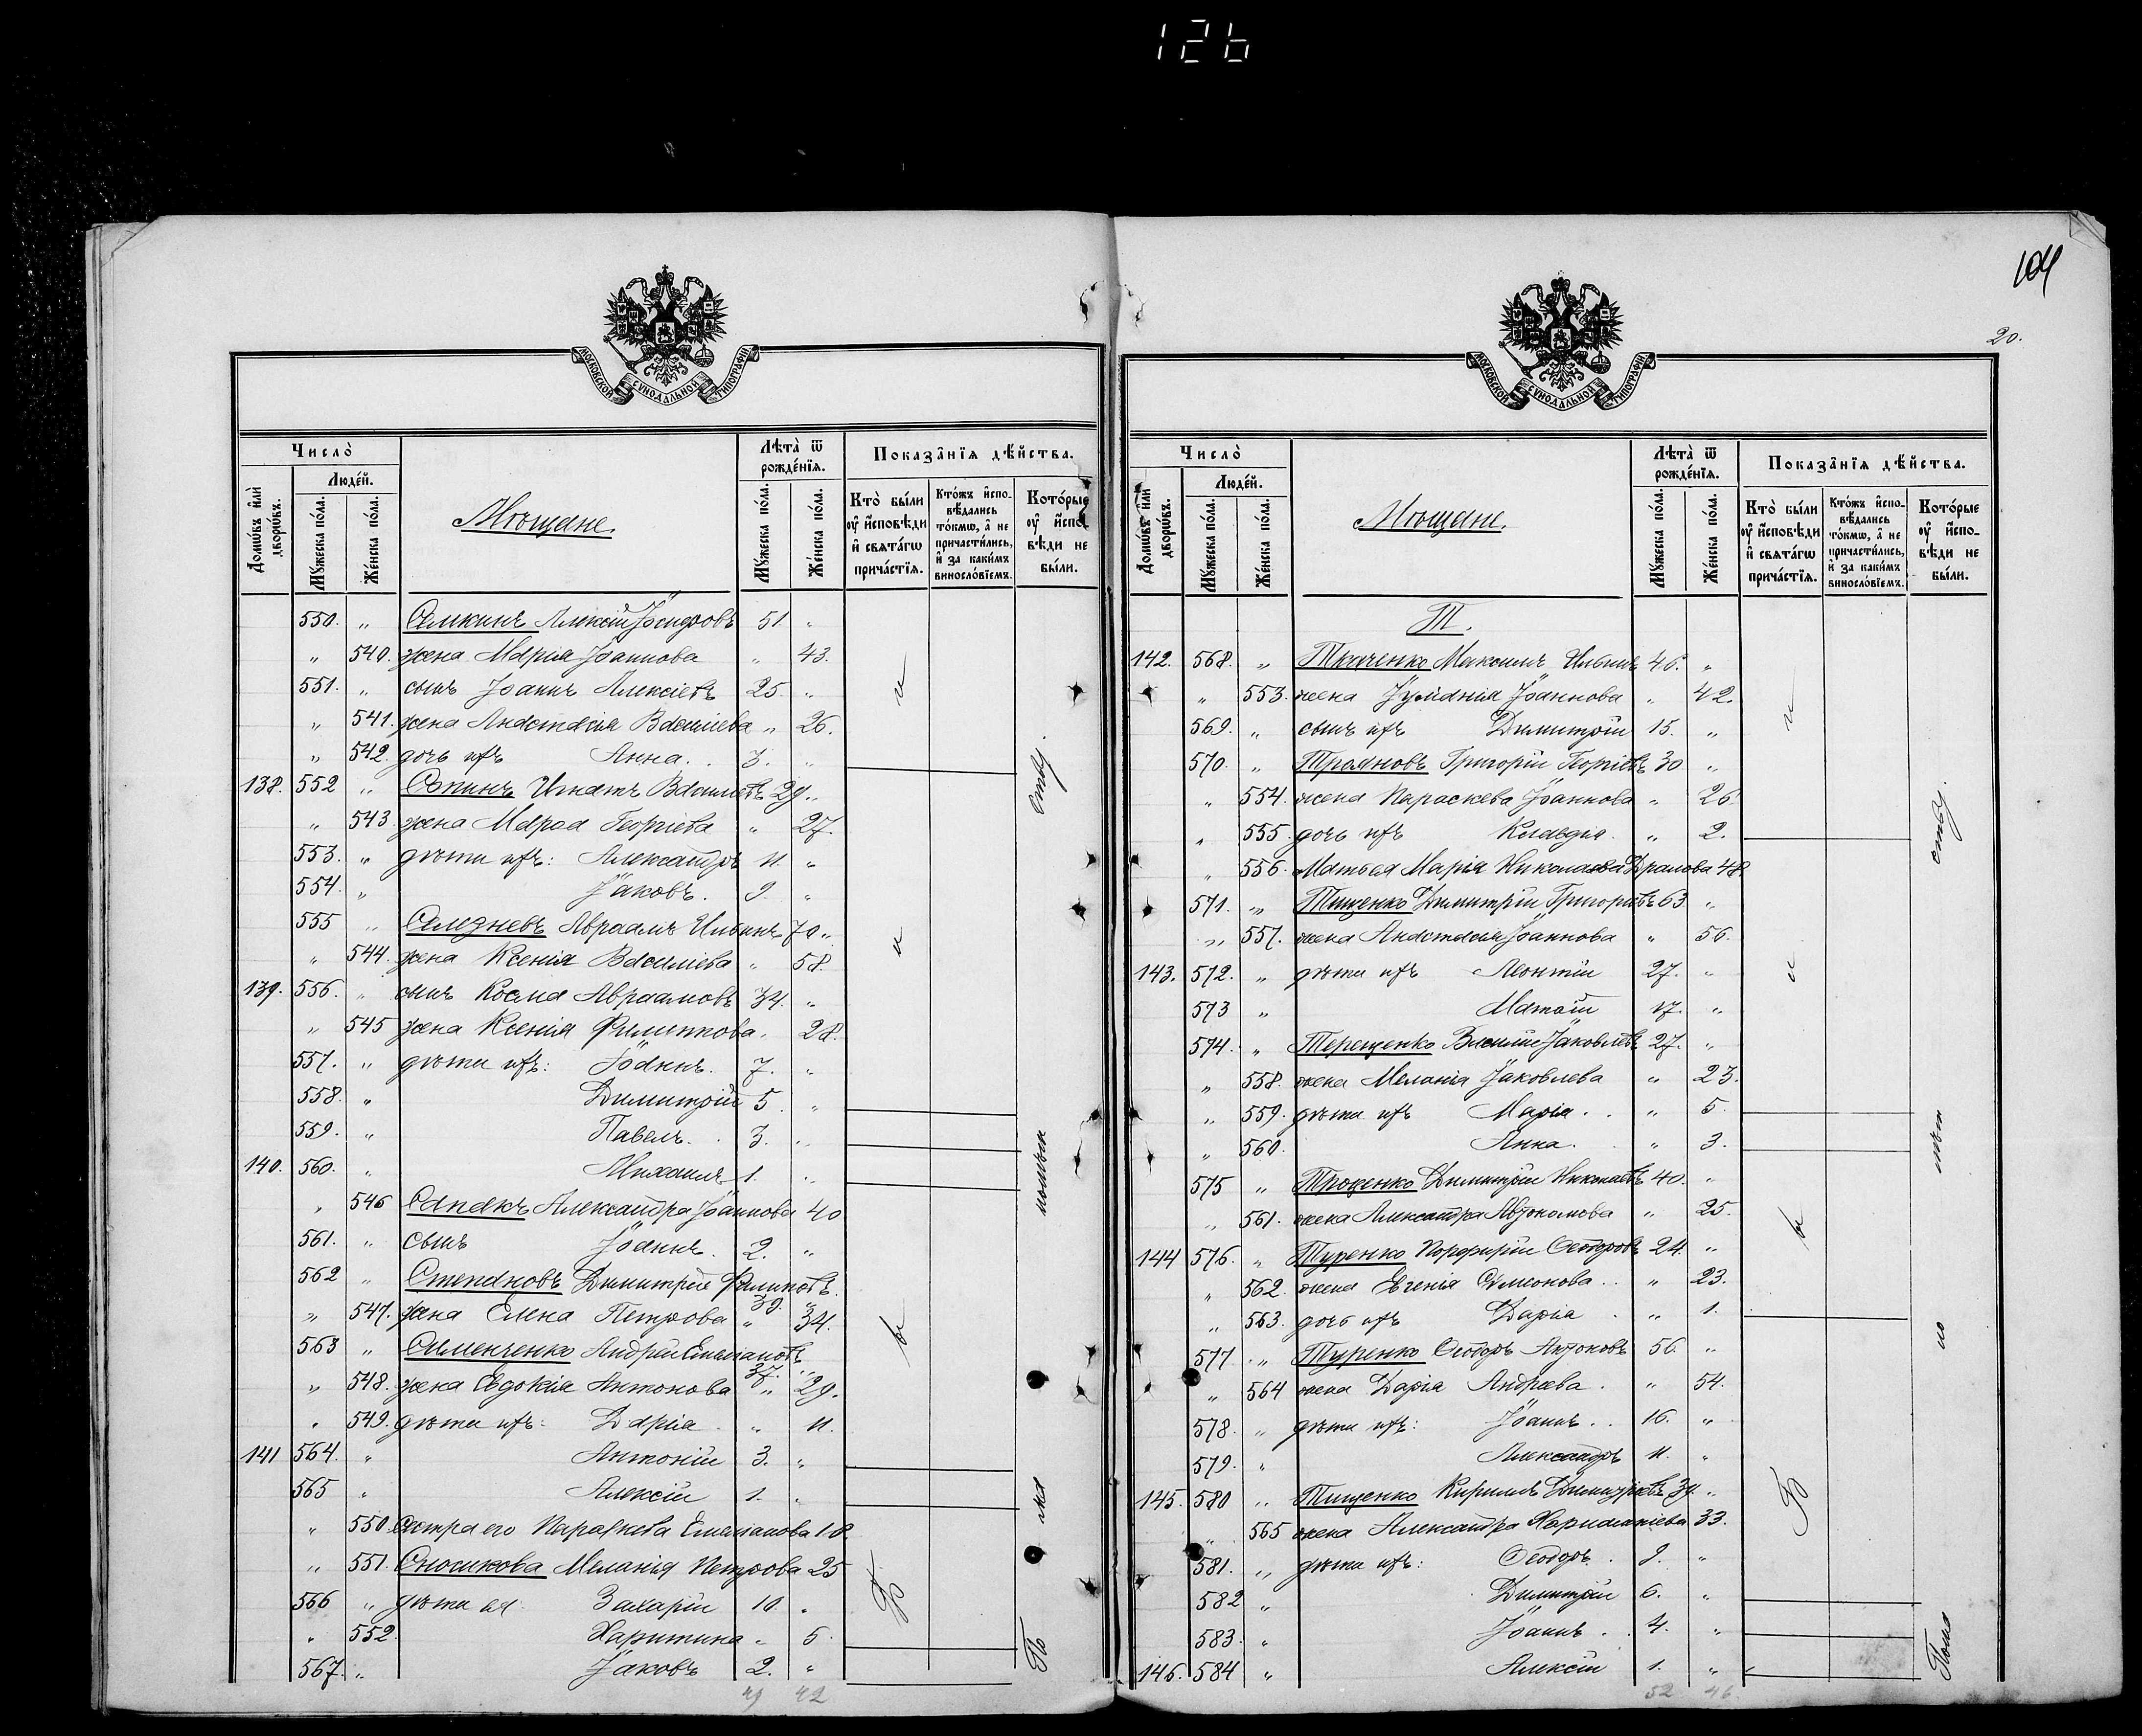 126
104
20.
МОСКОВСКОЙ СѴНОДАЛЬНОЙ ТИПОГРАФІИ
Число̀
Людéй.
Домѡ́въ и҆лѝ дворѡ́въ.
Мꙋ́жеска по́ла.
Же́нска по́ла.
Мѣщане.
Лѣ́та ѿ рожде́нїѧ.
Мꙋ́жеска по́ла.
Же́нска по́ла.
Показа̑нїѧ дѣ́йства.
Кто̀ бы́ли оу҆ и҆сповѣ́ди и҆ свѧта́гѡ прича́стїѧ.
Кто́жъ и҆сповѣ́дались то́кмѡ, а҆ не причасти́лись, и҆ за каки́мъ винословїемъ.
Кото́рые оу҆ и҆сповѣ́ди не бы́ли.
550. „ Семкинъ Алексій Ісидоровъ 51. „
„ 540. жена Марія Іоаннова „ 43.
551. „ сынъ Іоаннъ Алексіевъ 25. „
„ 541. жена Анастасія Василіева „ 26.
„ 542. дочь ихъ Анна. 3. „
138. 552 „ Сопинъ Игнатъ Василіевъ 29 „
„ 543 жена Марѳа Георгіева „ 27.
553. „ дѣти ихъ: Александръ 11. „
554. „ Іаковъ. 9. „
555 „ Селезневъ Авраамъ Ильинъ 70 „
„ 544. жена Ксенія Василіева „ 58.
139. 556. „ сынъ Косма Авраамовъ 34. „
„ 545 жена Ксенія Филиппова „ 28.
557. „ дѣти ихъ: Іоаннъ. 7. „
558. „ Димитрій 5. „
559. „ Павелъ. 3. „
140. 560. „ Михаилъ 1. „
„ 546 Сапакъ Александра Іоаннова 40
561. „ сынъ Іоаннъ. 2. „
562 „ Степановъ Димитрій Филиповъ. 39. „
„ 547. жена Елена Петрова „ 34.
563 „ Семенченко Андрей Емеліановъ 37. „
„ 548. жена Евдокія Антонова „ 29.
„ 549. дѣти ихъ: Дарія „ 11.
141 564. „ Антоній 3. „
565 „ Алексій 1. „
„ 550. Сестра его Параскева Емеліанова 18
„ 551. Сносикова Меланія Петрова 25
566 „ дѣти ея: Захарій 10. „
„ 552. Харитина „ 5.
567. „ Іаковъ 2. „
49 42
Число̀
Людéй.
Домѡ́въ и҆лѝ дворѡ́въ.
Мꙋ́жеска по́ла.
Же́нска по́ла.
Мѣщане.
Лѣ́та ѿ рожде́нїѧ.
Мꙋ́жеска по́ла.
Же́нска по́ла.
Показа̑нїѧ дѣ́йства.
Кто̀ бы́ли оу҆ и҆сповѣ́ди и҆ свѧта́гѡ прича́стїѧ.
Кто́жъ и҆сповѣ́дались то́кмѡ, а҆ не причасти́лись, и҆ за каки́мъ винословїемъ.
Кото́рые оу҆ и҆сповѣ́ди не бы́ли.
МОСКОВСКОЙ СѴНОДАЛЬНОЙ ТИПОГРАФІИ
Т.
142. 568. „ Ткаченко Максимъ Ильинъ 46. „
„ 553. жена Іуліанія Іоаннова „ 42.
569. „ сынъ ихъ Димитрій 15. „
570. „ Трояновъ Григорій Георгіевъ 30 „
„ 554. жена Параскева Іоаннова „ 26.
„ 555. дочь ихъ Клавдія. „ 2.
„ 556. Матъ ея Марія Николаева Драпова 48.
571. „ Тищенко Димитрій Григоріевъ 63. „
„ 557. жена Анастасія Іоаннова „ 56.
143. 572. „ дѣти ихъ Леонтій 27. „
573 „ Матѳій 17. „
574. „ Терещенко Василій Іаковлевъ 27. „
„ 558. жена Меланія Іаковлева „ 23.
„ 559. дѣти ихъ Марія. „ 5.
„ 560. Анна. „ 3.
575 „ Троценко Димитрій Николаевъ 40. „
„ 561. жена Александра Автономова „ 25.
144 576. „ Туренко Порфирій Ѳеодоровъ 24. „
„ 562. жена Евгенія Симеонова. „ 23.
„ 563. дочь ихъ Дарія „ 1.
577. „ Туренко Ѳеодоръ Антоновъ 56. „
„ 564 жена Дарія Андреева. „ 54.
578. „ дѣти ихъ: Іоаннъ. 16. „
579. „ Александръ 11. „
145. 580 „ Тищенко Кириллъ Димитріевъ 34. „
„ 565 жена Александра Харлампіева 33.
581. „ дѣти ихъ: Ѳеодоръ. 8. „
582 „ Димитрій 6. „
583. „ Іоаннъ. 4. „
146. 584 „ Алексій 1. „
52 46